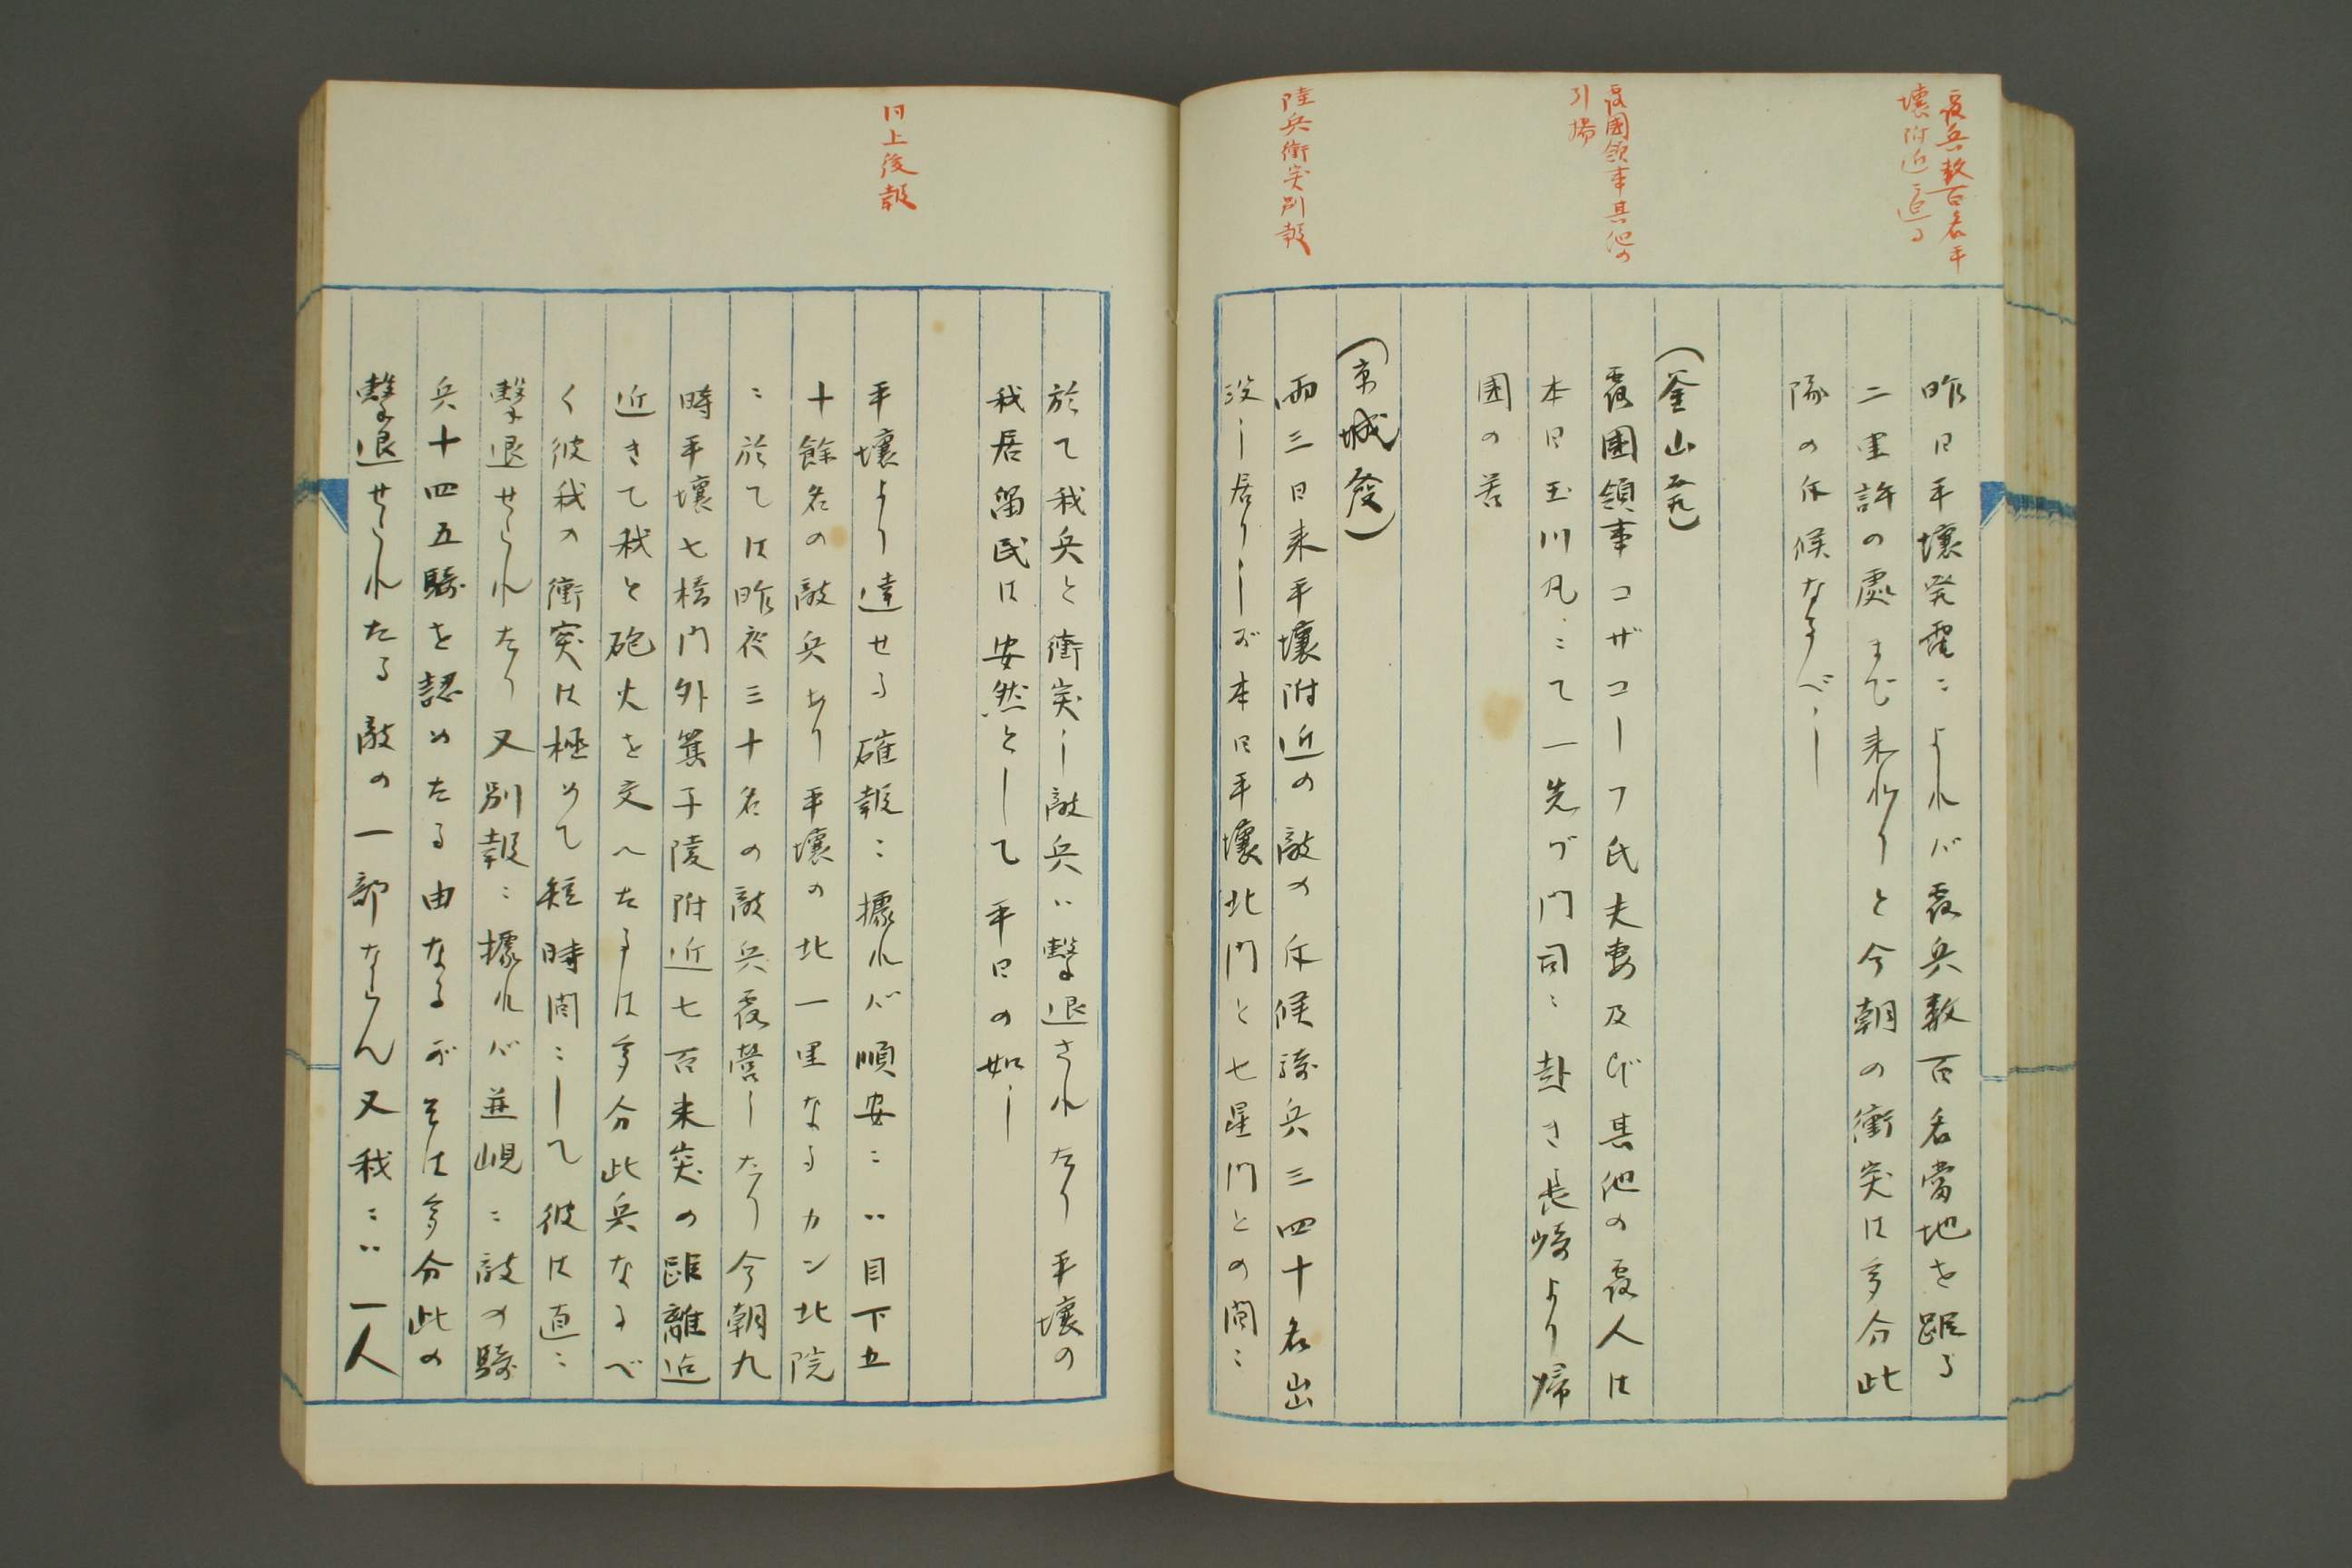 露兵数百名平
壌附近に迫る
昨日平壌発電ニよれバ露兵数百名當地を距る
二里許の處まで来れりと今朝の衝突は多分此
隊の斥候なるべし
(釜山発)
露國領事其他の
引揚
露國領事コザコーフ氏夫妻及び其他の露人は
本日玉川丸ニて一先づ門司ニ赴き長崎より帰
國の筈
(京城發)
陸兵衝突別報
両三日来平壌附近の敵の斥候騎兵三四十名出
没し居りしが本日平壌北門と七星門との間ニ
於て我兵と衝突し敵兵ハ撃退されたり平壌の
我居留民は安然として平日の如し
同上後報
平壌より達せる確報ニ據れバ順安ニハ目下五
十餘名の敵兵あり平壌の北一里なるカン北院
ニ於ては昨夜三十名の敵兵露營したり今朝九
時平壌七橋門外箕子陵附近七百米突の距離迄
近きて我と砲火を交へたるは多分此兵なるべ
く彼我の衝突は極めて短時間ニして彼は直ニ
撃退せられたり又別報ニ據れバ並峴ニ敵の騎
兵十四五騎を認めたる由なるがそは多分此の
撃退せられたる敵の一部ならん又我ニハ一人